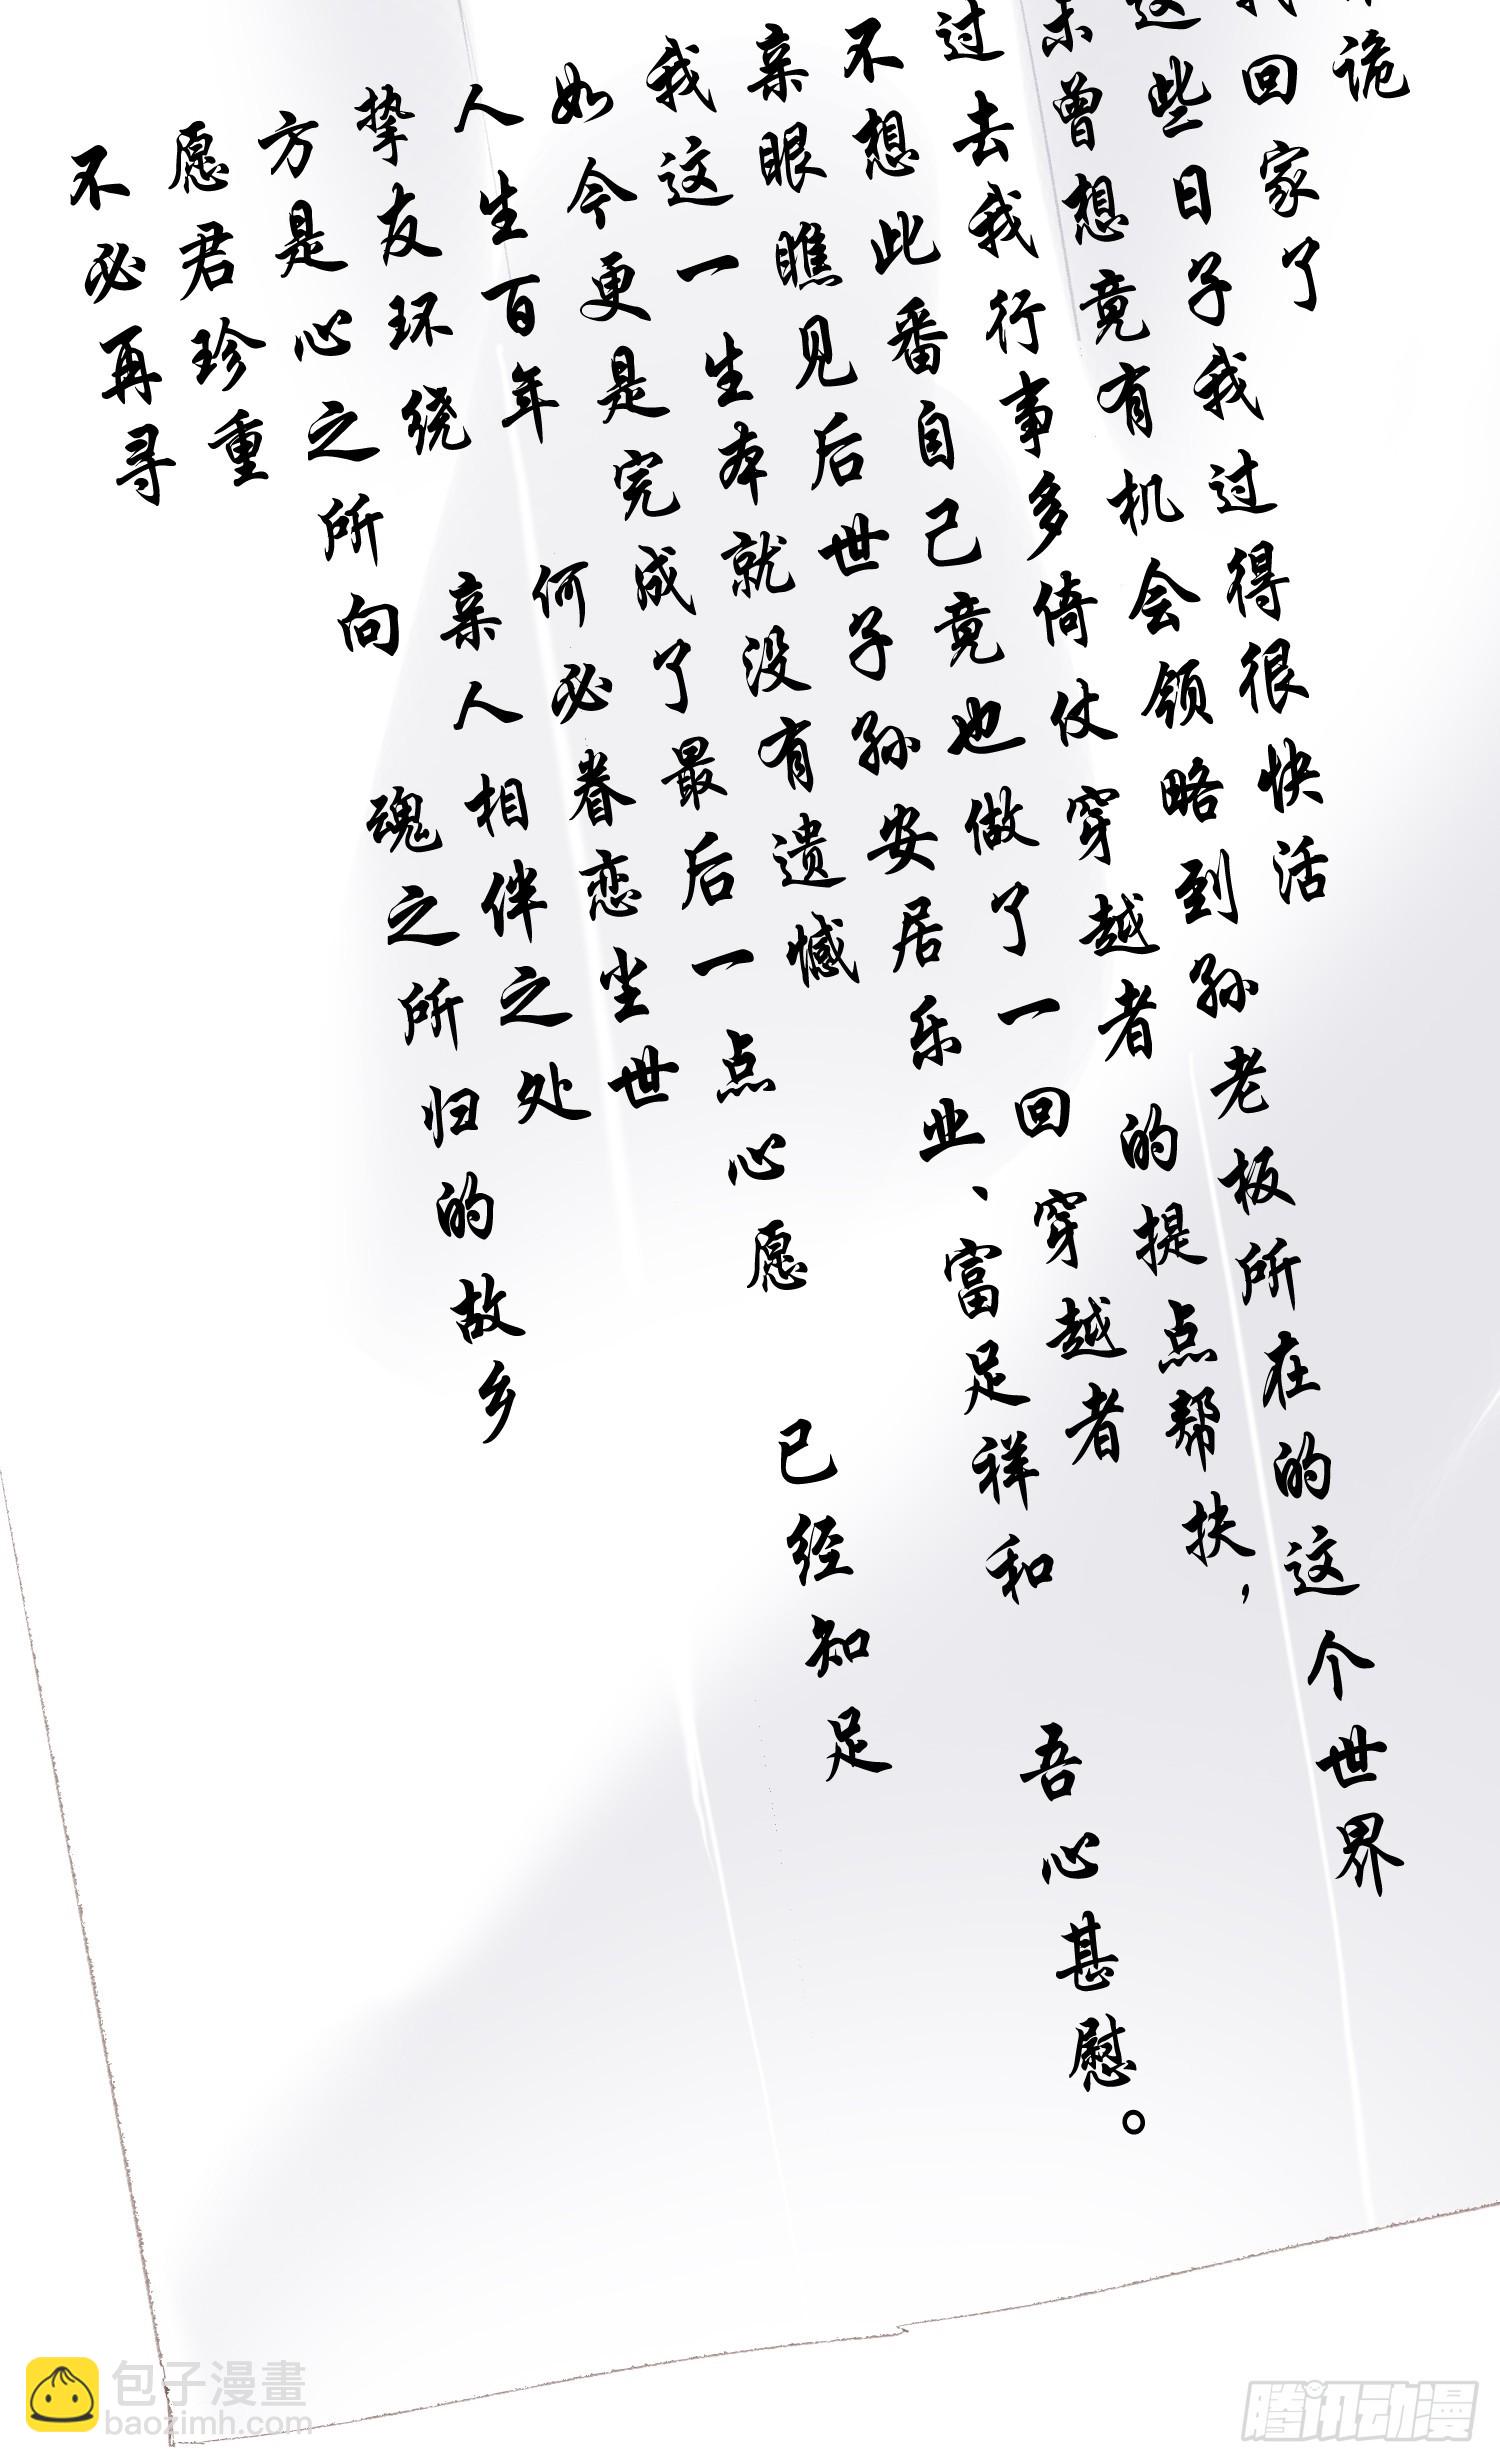 诡
回家了
这些日子我过得很快活
未曾想竟有机会领略到孙老板所在的这个世界
过去我行事多倚仗穿越者的提点帮扶，
不想此番自己竟也做了一回穿越者
亲眼瞧见后世子孙安居乐业、富足祥和 吾心甚慰。
我这一生本就没有遗憾
如今更是完成了最后一点心愿 已经知足
人生百年 何必眷恋尘世
挚友环绕 亲人相伴之处
方是心之所向 魂之所归的故乡
愿君珍重
不必再寻
包子漫畫
baozimh.com
腾讯动漫